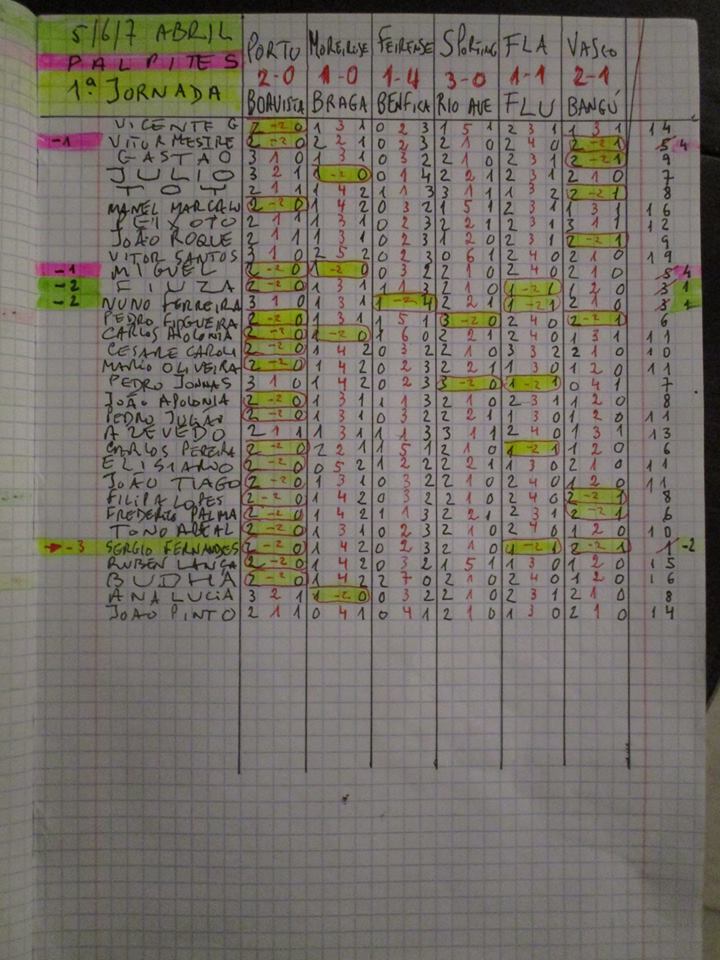 5/6/7 ABRIL
PALPITES
1ª JORNADA
PORTO MOREIRSE FEIRENSE SPORTING FLA VASCO
2-0 1-0 1-4 3-0 1-1 2-1
BOAVISTA BRAGA BENFICA RIO AVE FLU BANGÚ
VICENTE G 2 -2 0 1 3 1 0 2 3 1 5 1 2 3 1 1 3 1 14
-1 VITOR MESTRE 2 -2 0 2 2 1 0 2 3 2 1 0 2 4 0 2 -2 1 5 4
GASTÃO 3 1 0 1 3 1 0 3 2 2 1 0 2 3 1 2 -2 1 9
JULIO 3 2 1 1 -2 0 0 1 4 2 2 1 2 3 1 2 1 0 7
TOY 2 1 1 1 4 2 1 1 3 3 1 1 1 3 2 2 -2 1 8
MANEL MARCELO 2 -2 0 1 4 2 0 3 2 1 5 1 2 3 1 1 3 1 16
PEIXOTO 2 1 1 1 3 1 0 2 3 2 2 1 2 3 1 3 1 12
JOÃO ROQUE 2 1 1 1 3 1 0 2 3 1 2 0 2 3 1 2 -2 1 9
VITOR SANTOS 3 1 0 2 5 2 0 3 2 0 6 1 2 4 0 2 1 0 19
-1 MIGUEL 2 -2 0 1 -2 0 0 3 2 2 1 0 2 4 0 2 1 0 5 4
-2 FIUZA 2 -2 0 1 3 1 1 1 3 2 1 0 1 -2 1 1 2 0 3 1
-2 NUNO FERREIRA 3 1 0 1 3 1 1 -2 4 2 2 1 1 -2 1 2 1 0 3 1
PEDRO FIGUEIRA 2 -2 0 1 3 1 1 5 1 3 -2 0 2 4 0 2 -2 1 6
CARLOS APOLONIA 2 -2 0 1 -2 0 1 6 0 2 2 1 2 4 0 1 3 1 11
CESARE CAROLI 2 -2 0 1 4 2 0 3 2 2 1 0 3 3 2 2 1 0 10
MARIO OLIVEIRA 2 -2 0 1 4 2 0 2 3 2 2 1 1 3 0 1 2 0 11
PEDRO JONNAS 3 1 0 1 4 2 0 2 3 3 -2 0 1 -2 1 0 4 1 7
JOÃO APOLONIA 2 -2 0 1 3 1 1 1 3 2 1 0 2 3 1 1 2 0 8
PEDRO JUGÃO 2 -2 0 1 3 1 0 3 2 2 2 1 1 3 0 1 2 0 11
AZEVEDO 2 1 1 1 3 1 1 1 3 3 1 1 2 4 0 1 3 1 13
CARLOS PEREIRA 2 -2 0 2 2 1 1 5 1 2 1 0 1 -2 1 1 2 0 6
ELISIARIO 2 -2 0 0 5 2 1 2 2 2 2 1 1 3 0 2 1 0 11
JOÃO TIAGO 2 -2 0 1 3 1 0 3 2 2 1 0 2 4 0 1 2 0 11
FILIPA LOPES 2 -2 0 1 4 2 0 3 2 2 1 0 2 4 0 2 -2 1 8
FREDERICO PALMA 2 -2 0 1 4 2 0 3 2 2 2 1 2 3 1 2 -2 1 6
TONO AREAL 2 -2 0 1 3 1 0 2 3 2 1 0 2 4 0 1 2 0 10
-3 SERGIO FERNANDES 2 -2 0 1 4 2 0 2 3 2 1 0 1 -2 1 2 -2 1 1 -2
RUBEN LANÇA 2 -2 0 1 4 2 0 3 2 1 5 1 1 3 0 1 2 0 15
BUDHA 2 -2 0 1 4 2 2 7 0 2 1 0 2 4 0 1 2 0 16
ANA LUCIA 3 2 1 1 -2 0 0 3 2 2 1 0 2 3 1 2 1 0 8
JOÃO PINTO 2 1 1 0 4 1 0 4 1 2 1 0 1 3 0 2 1 0 14